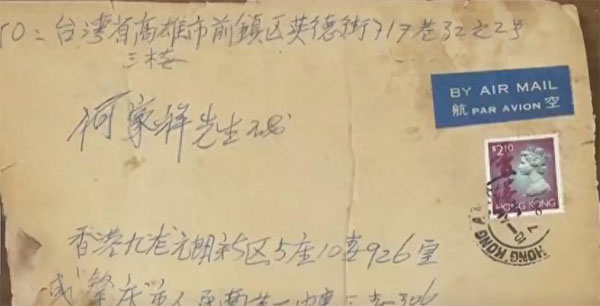 TO: 台湾省高雄市前鎮区英德街717巷32之2号
三楼
BY AIR MAIL
航 PAR AVION 空
何家祥先生收
$2.10
香港
HONG KONG
HONG KONG
香港九龙元朗新区5座10楼926室
或肇庆市人民南